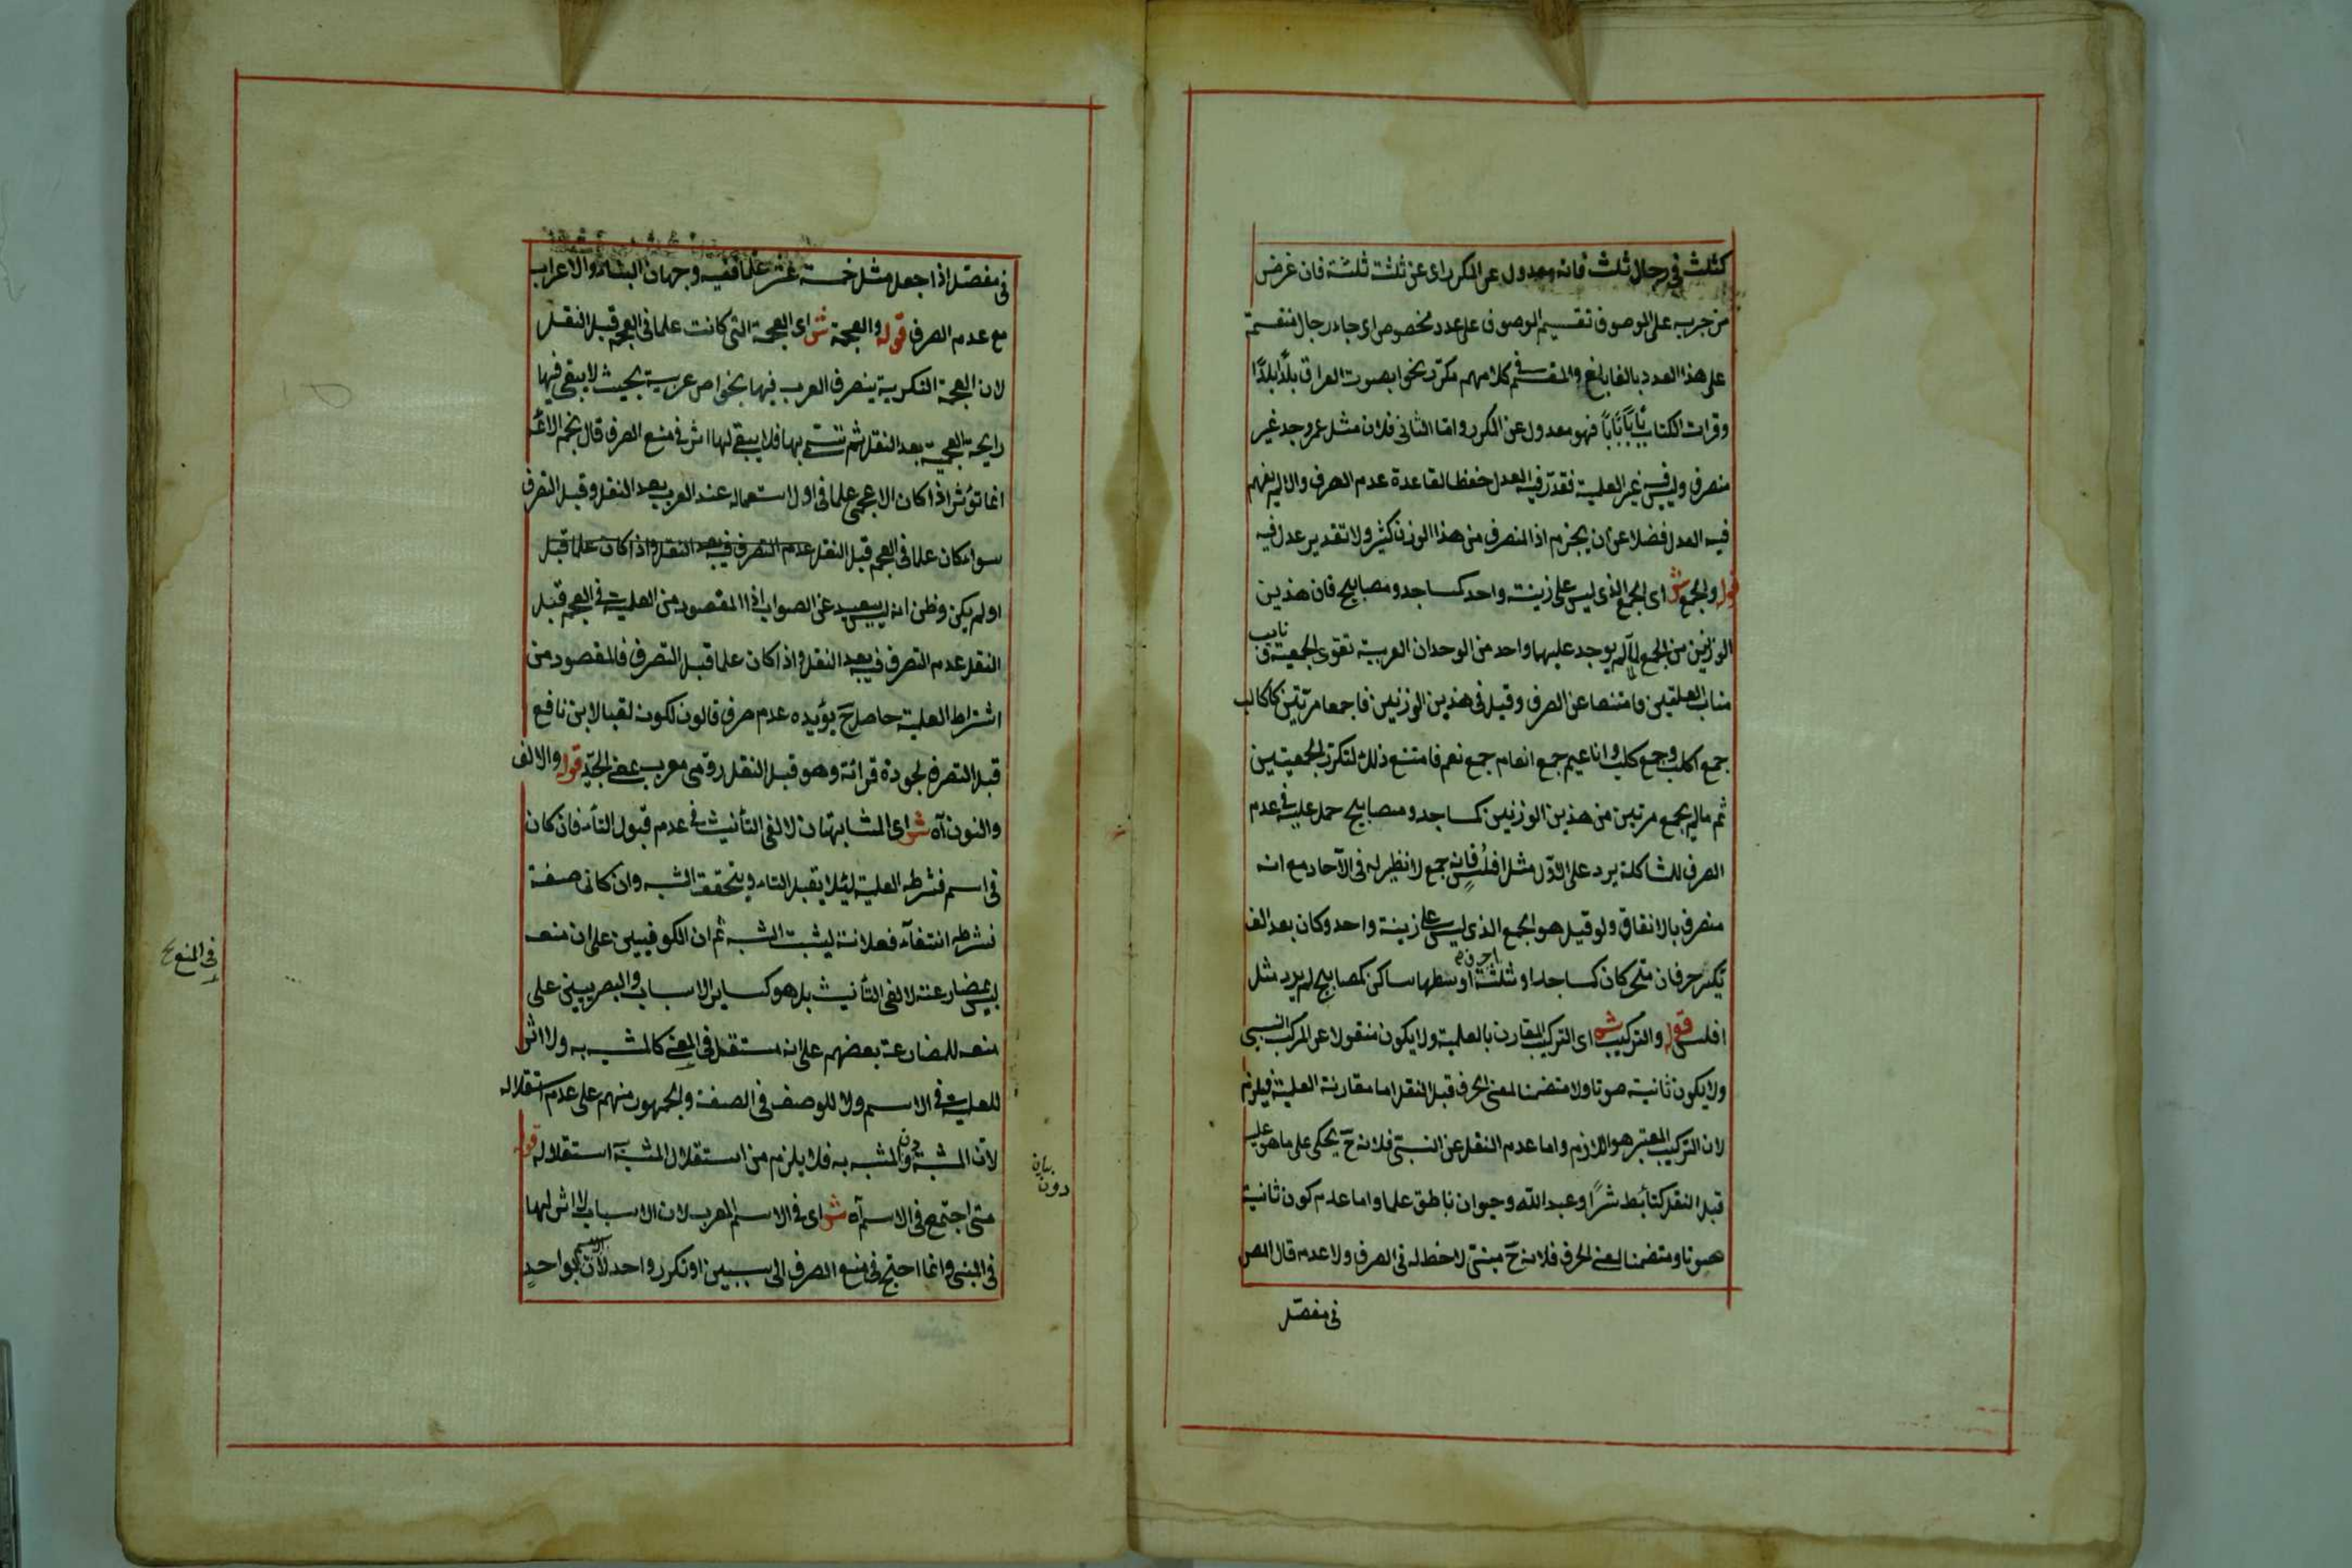 كثلث في رجال ثلث فانه معدول عن المكرر اى عن ثلثة ثلثة فان غرض
من جريه على الموصوف تقسيم الموصوف على عدد مخصوص اى جاء رجال منقسمة
على هذا العدد بالغا بلغ والمقسم في كلامهم مكرر نحو ابصرت العراق بلدًا بلدًا
وقرات الكتاب بابًا بابًا فهو معدول عن المكرر واما الثانى فلان مثل عمر وجد غير
منصرف وليس فيه غير العلمية فقدّر فيه العدل حفظا لقاعدة عدم الصرف والا لم يفهم
فيه العدل فضلا عن ان يجزم اذ المنصرف من هذا الوزن كثير ولا تقدير عدل فيه
قوله والجمع ش اى الجمع الذى ليس على زينة واحد كمساجد ومصابيح فان هذين
الوزنين من الجمع لما لم يوجد عليهما واحد من الوحدان العربية تقوى الجمعية فى نايب
مناب العلتين فامتنعا عن الصرف وقيل في هذين الوزنين فاجمعا مرتين كاكالب
جمع اكلب وجمع كلب واناعيم جمع انعام جمع نعم فامتنع ذلك لتكرر الجمعيتين
ثم ما لم يجمع مرتين من هذين الوزنين كمساجد ومصابيح حمل عليه في عدم
الصرف للمشاكلة يرد على الاول مثل افلُسٍ فانه جمع لا نظير له فى الآحاد مع انه
منصرف بالاتفاق ولو قيل هو الجمع الذى ليس على زينة واحد وكان بعد الف
تكسر حرفان متحركان كمساجد او ثلثة احرف اوسطها ساكن كمصابيح لم يرد مثل
افلس قوله والتركيب ش اى التركيب المقارن بالعلمية ولا يكون منقولا عن المركب النسبى
ولا يكون ثانية صوتا ولا متضمنا لمعنى الحرف قبل النقل اما مقارنة العلمية فيلزم
لان التركيب المعتبر هو اللازم واما عدم النقل عن النسبتى فلانه ح يحكى على ما هو عليه
قبل النقل كتأبط شرًا وعبد الله وحيوان ناطق علما واما عدم كون ثانية
صوتا ومتضمنا لمعنى الحرف فلانه ح مبنىّ لا حظ له فى الصرف ولا عدمه قال المص
فى مفصّل
فى مفصّل اذا جعل مثل خمسة عشر علما ففيه وجهان البناء والاعراب
مع عدم الصرف قوله والعجمة ش اى العجمة التى كانت علما فى العجم قبل النقل
لان العجمة النكرية يتصرف العرب فيها بخواص عربية بحيث لا يبقى فيها
رايحة العجمية بعد النقل ثم تسمى بها فلا يبقى لها اثر في منع الصرف قال نجم الائمه
انما تؤثر اذا كان الاعجمى علما فى اول استعماله عند العرب بعد النقل وقبل التصرف
سواء كان علما فى العجم قبل النقل عدم التصرف فيه بعد النقل واذا كان علما قبل
او لم يكن وظن انه ليس ببعيد عن الصواب اذ المقصود من العلمية في العجم قبل
النقل عدم التصرف فيه بعد النقل واذ كان علما قبل التصرف فالمقصود من
اشتراط العلمية حاصل ح يؤيده عدم صرف قالون لكونه لقبا لابن نافع
قبل التصرف لجودة قرائة وهو قبل النقل رومى معرب بمعنى الجيّد قوله والالف
والنون آه ش اى المشابهتان لالفى التأنيث فى عدم قبول التاء فان كان
فى اسم فشرطه العلمية ليئلا يقبل التاء ويتحقق الشبه وان كانى صفة
فشرطه انتفاء فعلانة ليثبت الشبه ثم ان الكوفيين على ان منعه
ليس بمضارعته لالفى التأنيث بل هو كساير الاسباب والبصريين على
منعه للمضارعة بعضهم على انه مستقل فى المعنى كالمشبه به ولا اثر
فى المنع
للعلمية فى الاسم ولا للوصف فى الصفة والجمهور منهم على عدم استقلاله
لان المشبه دون المشبه به فلا يلزم من استقلال المشبه استقلاله قوله
بيان
دون
متى اجتمع فى الاسم آه ش اى فى الاسم المعرب لان الاسباب لا اثر لها
فى المبنى وانما احتيج فى منع الصرف الى سببين او تكرر واحد لان الاسم بواحدٍ